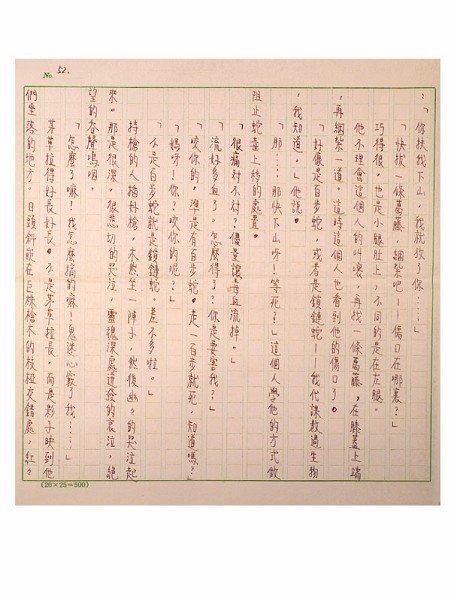 No. 52.
：「你扶我下山，我就放了你。」
「快拔一條葛藤，綑紮吧——傷口在哪裏？」
巧得很，也是小腿肚上，不同的是在左腿。
他不理會這個人的叫喚，再找一條葛藤，在膝蓋上端
，再綑紮一道。這時這個人也看到他的傷口了。
「好像是百步蛇，或者是鎖鏈蛇——我代課教過生物
，我知道。」他說。
「那……那快下山呀！等死？」這個人學他的方式做
阻止蛇毒上的處置。
「很痛對不對？儘量讓毒血流掉。」
「流好多血了。怎麼得了？你是要害我？」
「咬你的，準是百步蛇。走一百步就死，知道嗎？」
「媽呀！你？咬你的呢？」
「不是百步蛇就是鎖鏈蛇。差不多啦。」
持槍的人搞好槍，木然坐一陣子，然後幽々的哭泣起
來。那是很深，很悲切的哭泣，靈魂深處迸發的哀泣，絕
望的吞聲嗚咽。
「怎麼了嘛！我怎麼搞的嘛！鬼迷心竅了我……」
茅草拉得好長好長。不是茅草拉長，而是影子映到他
們坐落的地方。日頭斜嵌在巨株檜木的枝椏交錯處，紅々
(20×25=500)